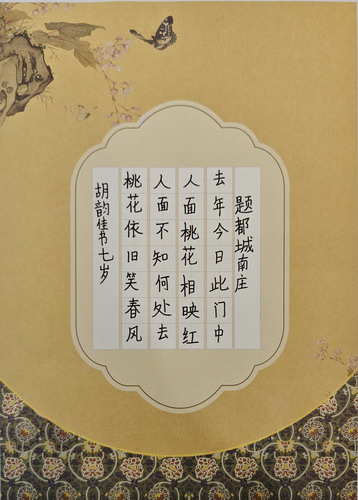 题都城南庄
去年今日此门中
人面桃花相映红
人面不知何处去
桃花依旧笑春风
胡韵佳书七岁